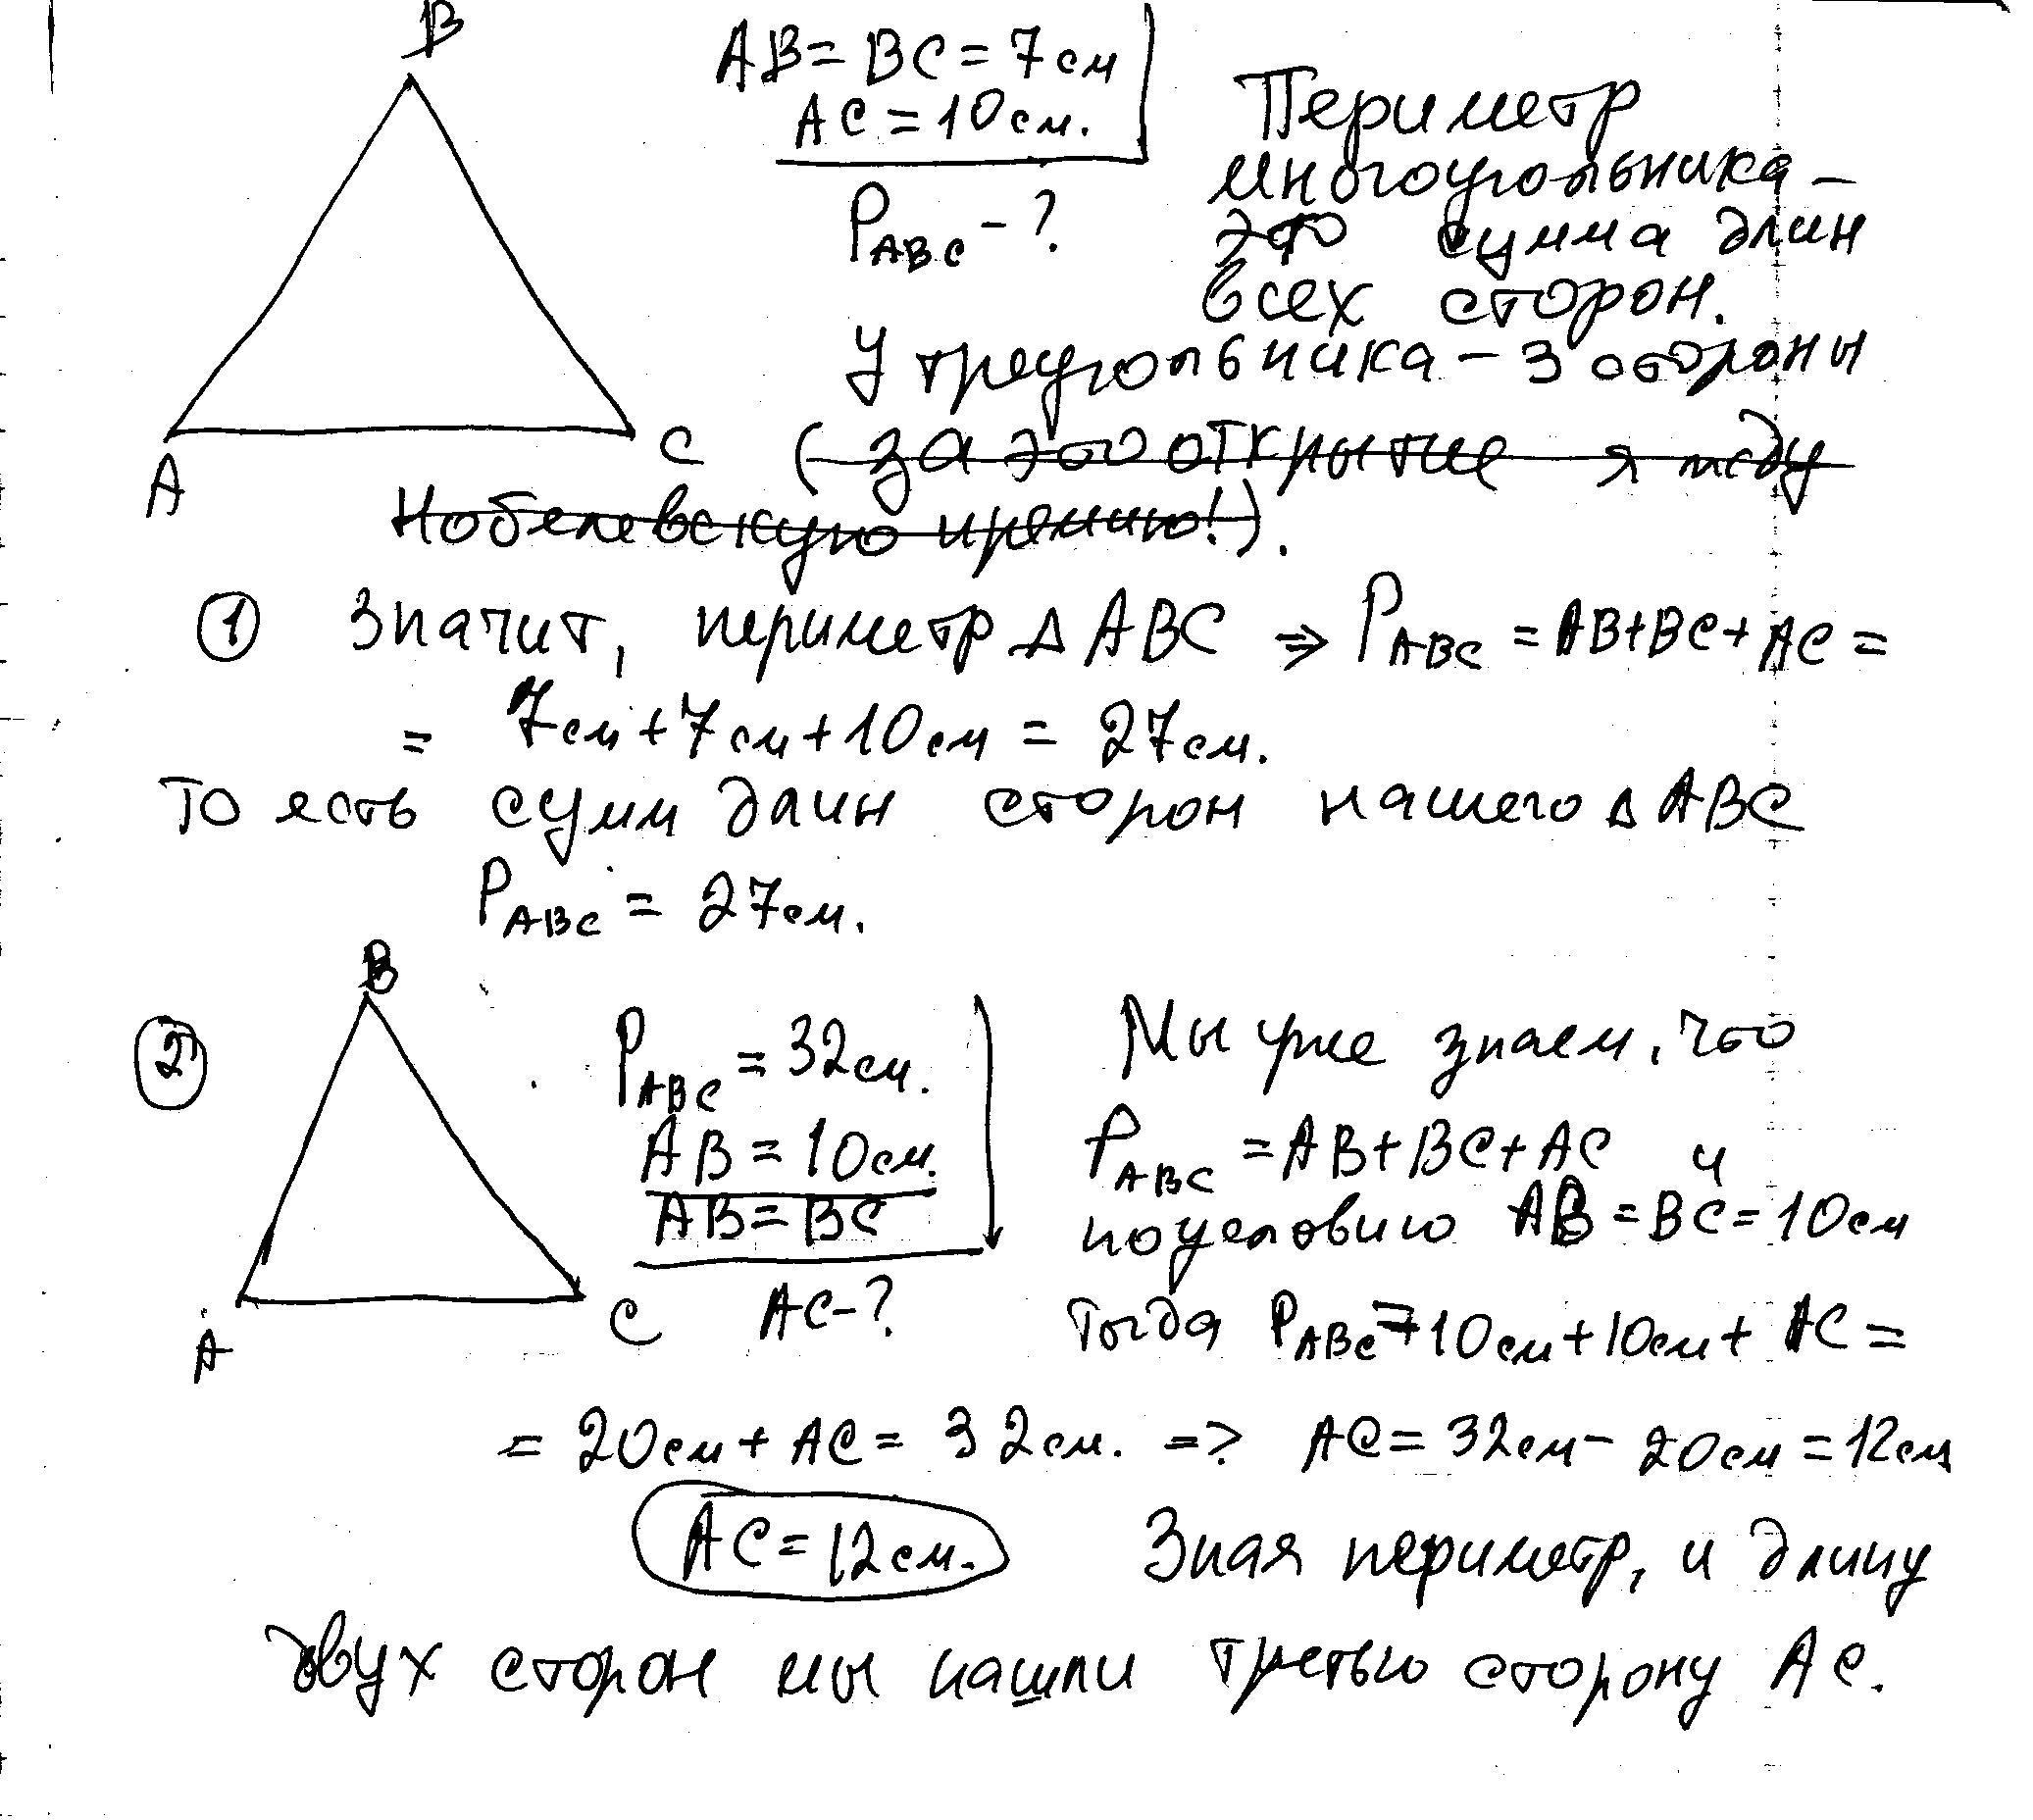 B
AB = BC = 7см
AC = 10см.
P ABC - ?
Периметр
многоугольника -
это сумма длин
всех сторон.
У треугольника - 3 стороны
A
C
(за это открытие я жду
Нобелевскую премию!).
1 Значит, периметр Δ ABC ⇒ P ABC = AB+BC+AC =
= 7см+7см+10см = 27см.
То есть сумм длин сторон нашего Δ ABC
P ABC = 27см.
2
B
A
C
P ABC = 32см.
AB = 10см.
AB = BC
AC-?
Мы уже знаем, что
P ABC = AB+BC+AC и
по условию AB = BC = 10см
Тогда P ABC = 10см+10см+ AC =
= 20см + AC = 32см. => AC = 32см - 20см = 12см
AC = 12см.
Зная периметр, и длину
двух сторон мы нашли третью сторону AC.